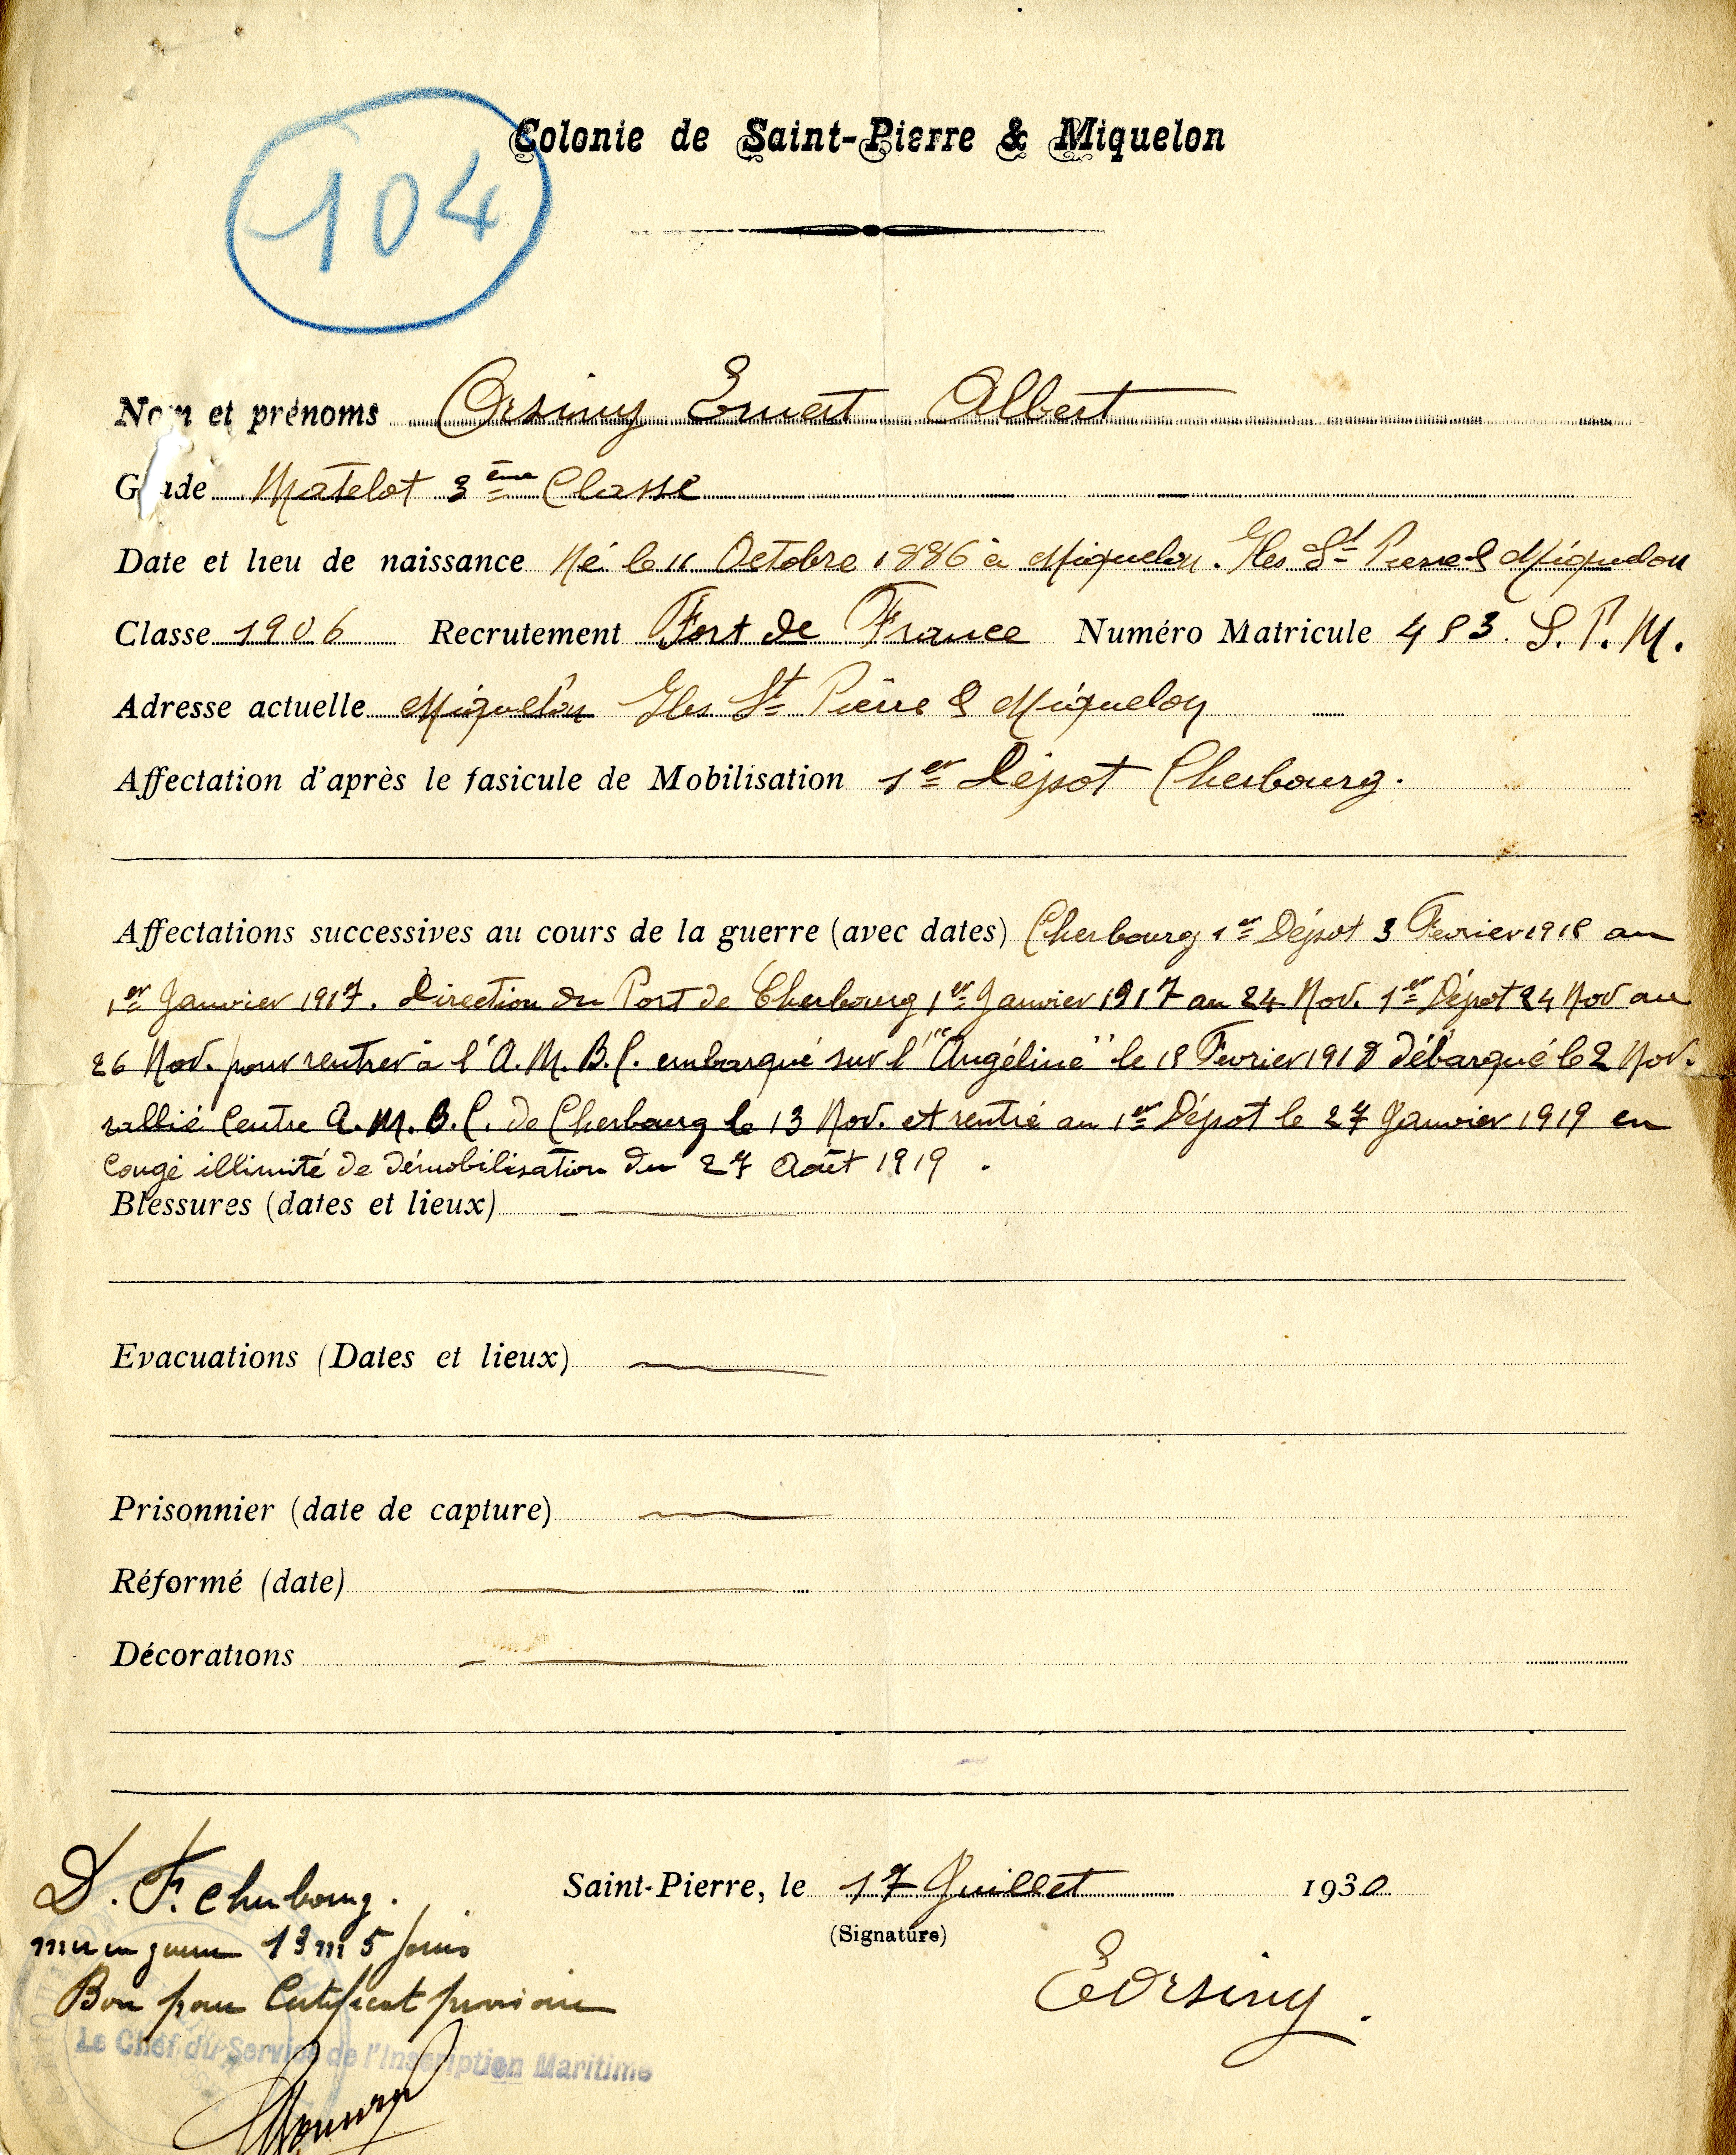 104
Colonie de Saint-Pierre & Miquelon
Nom et prénoms Orsiny Ernest Albert
Grade Matelot 3ème Classe
Date et lieu de naissance Né le 11 Octobre 1886 à Miquelon. Iles St Pierre & Miquelon
Classe 1906 Recrutement Fort de France Numéro Matricule 483. S.P.M.
Adresse actuelle Miquelon Iles St Pierre & Miquelon
Affectation d'après le fasicule de Mobilisation 1er Dépot Cherbourg.
Affectations successives au cours de la guerre (avec dates) Cherbourg 1er Dépot 3 Fevrier 1916 au
1er Janvier 1917. Direction du Port de Cherbourg 1er Janvier 1917 au 24 Nov. 1er Dépot 24 Nov au
26 Nov. pour rentrer à l'A.M.B.C. embarqué sur l'"Angéline" le 18 Fevrier 1918 débarqué le 2 Nov.
rallié Centre A.M.B.C. de Cherbourg le 13 Nov. et rentré au 1er Dépot le 27 Janvier 1919 en
Congé illimité de démobilisation du 27 Août 1919.
Blessures (dates et lieux)
Evacuations (Dates et lieux)
Prisonnier (date de capture)
Réformé (date)
Décorations
D. F. Cherbourg.
Saint-Pierre, le 17 Juillet 1930
(Signature)
mer en guerre 13 m 5 jours
EOrsiny.
Bon pour Certificat provisoire
Le Chef du Service de l'Inscription Maritime